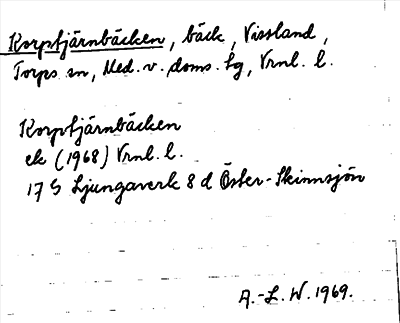 Korptjärnbäcken, bäck, Vissland,
Torps sn, Med. v. doms. lg, Vrnl. l.
Korptjärnbäcken
ek (1968) Vrnl. l.
17 G Ljungaverk 8 d Öster-Skinnsjön
A.-L. W. 1969.